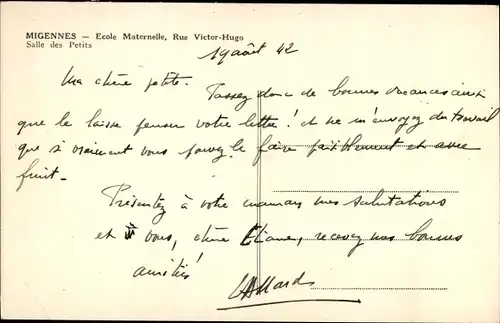 MIGENNES — Ecole Maternelle, Rue Victor-Hugo
Salle des Petits
19 août 42
Ma chère petite. Passez donc de bonnes vacances ainsi
que le laisse penser votre lettre! et ne m'envoyez du travail
que si vraiment vous pouvez le faire paisiblement et avec
fruit.
Présentez à votre maman mes salutations
et à vous, chère Eliane, recevez mes bonnes
amitiés!